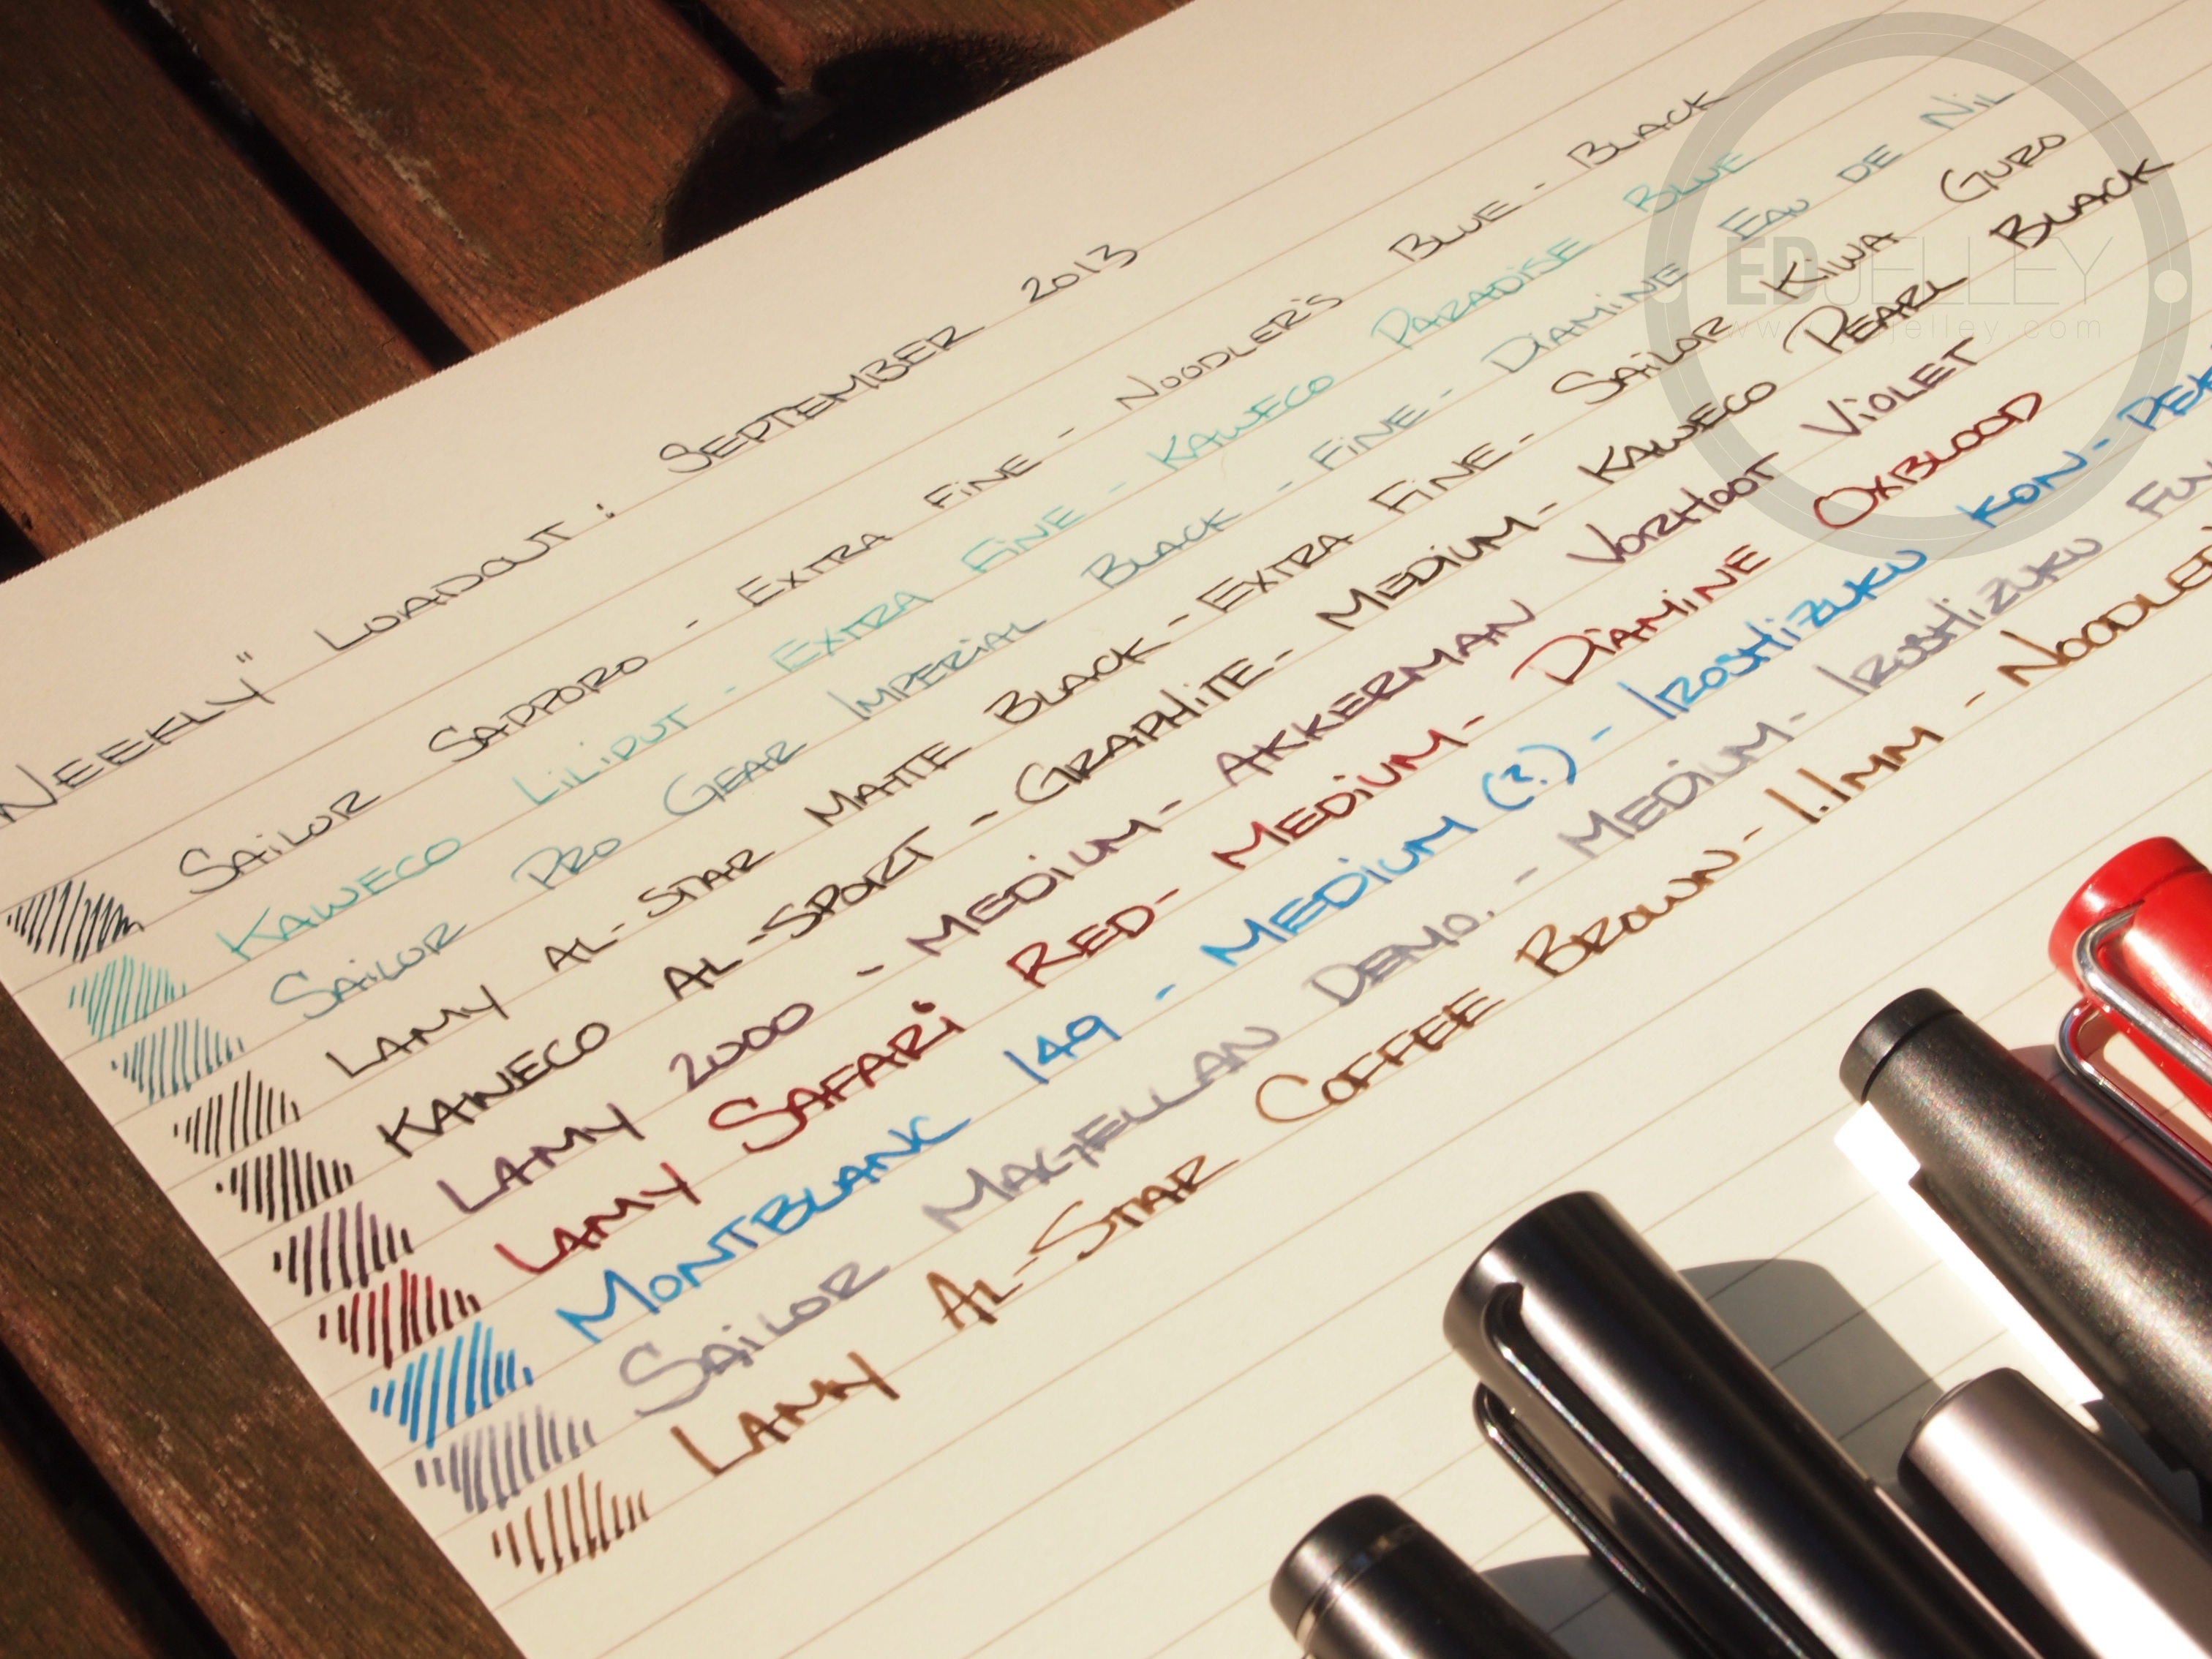 Weekly" Loadout: September 2013
Sailor Sapporo - Extra Fine - Noodler's Blue-Black
Kaweco Liliput - Extra Fine - Kaweco Paradise Blue
Sailor Pro Gear Imperial Black - Fine - Diamine Eau de Nil
Lamy Al-Star Matte Black - Extra Fine - Sailor Kiwa Guro
Kaweco Al-Sport - Graphite - Medium - Kaweco Pearl Black
Lamy 2000 - Medium - Akkerman Vorhoot Violet
Lamy Safari Red - Medium - Diamine Oxblood
Montblanc 149 - Medium (?) - Iroshizuku Kon-Pe
Sailor Magellan Demo. - Medium - Iroshizuku Fu
Lamy Al-Star Coffee Brown - 1.1mm - Noodler
EDJELLEY